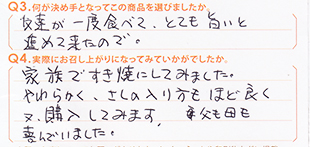 Q3.何が決め手となってこの商品を選びましたか。
友達が一度食べて、とても旨いと
進めて来たので。
Q4.実際にお召し上がりになってみていかがでしたか。
家族ですき焼にしてみました。
やわらかく、さしの入り方もほど良く
又、購入してみます。 父も母も
喜んでいました。